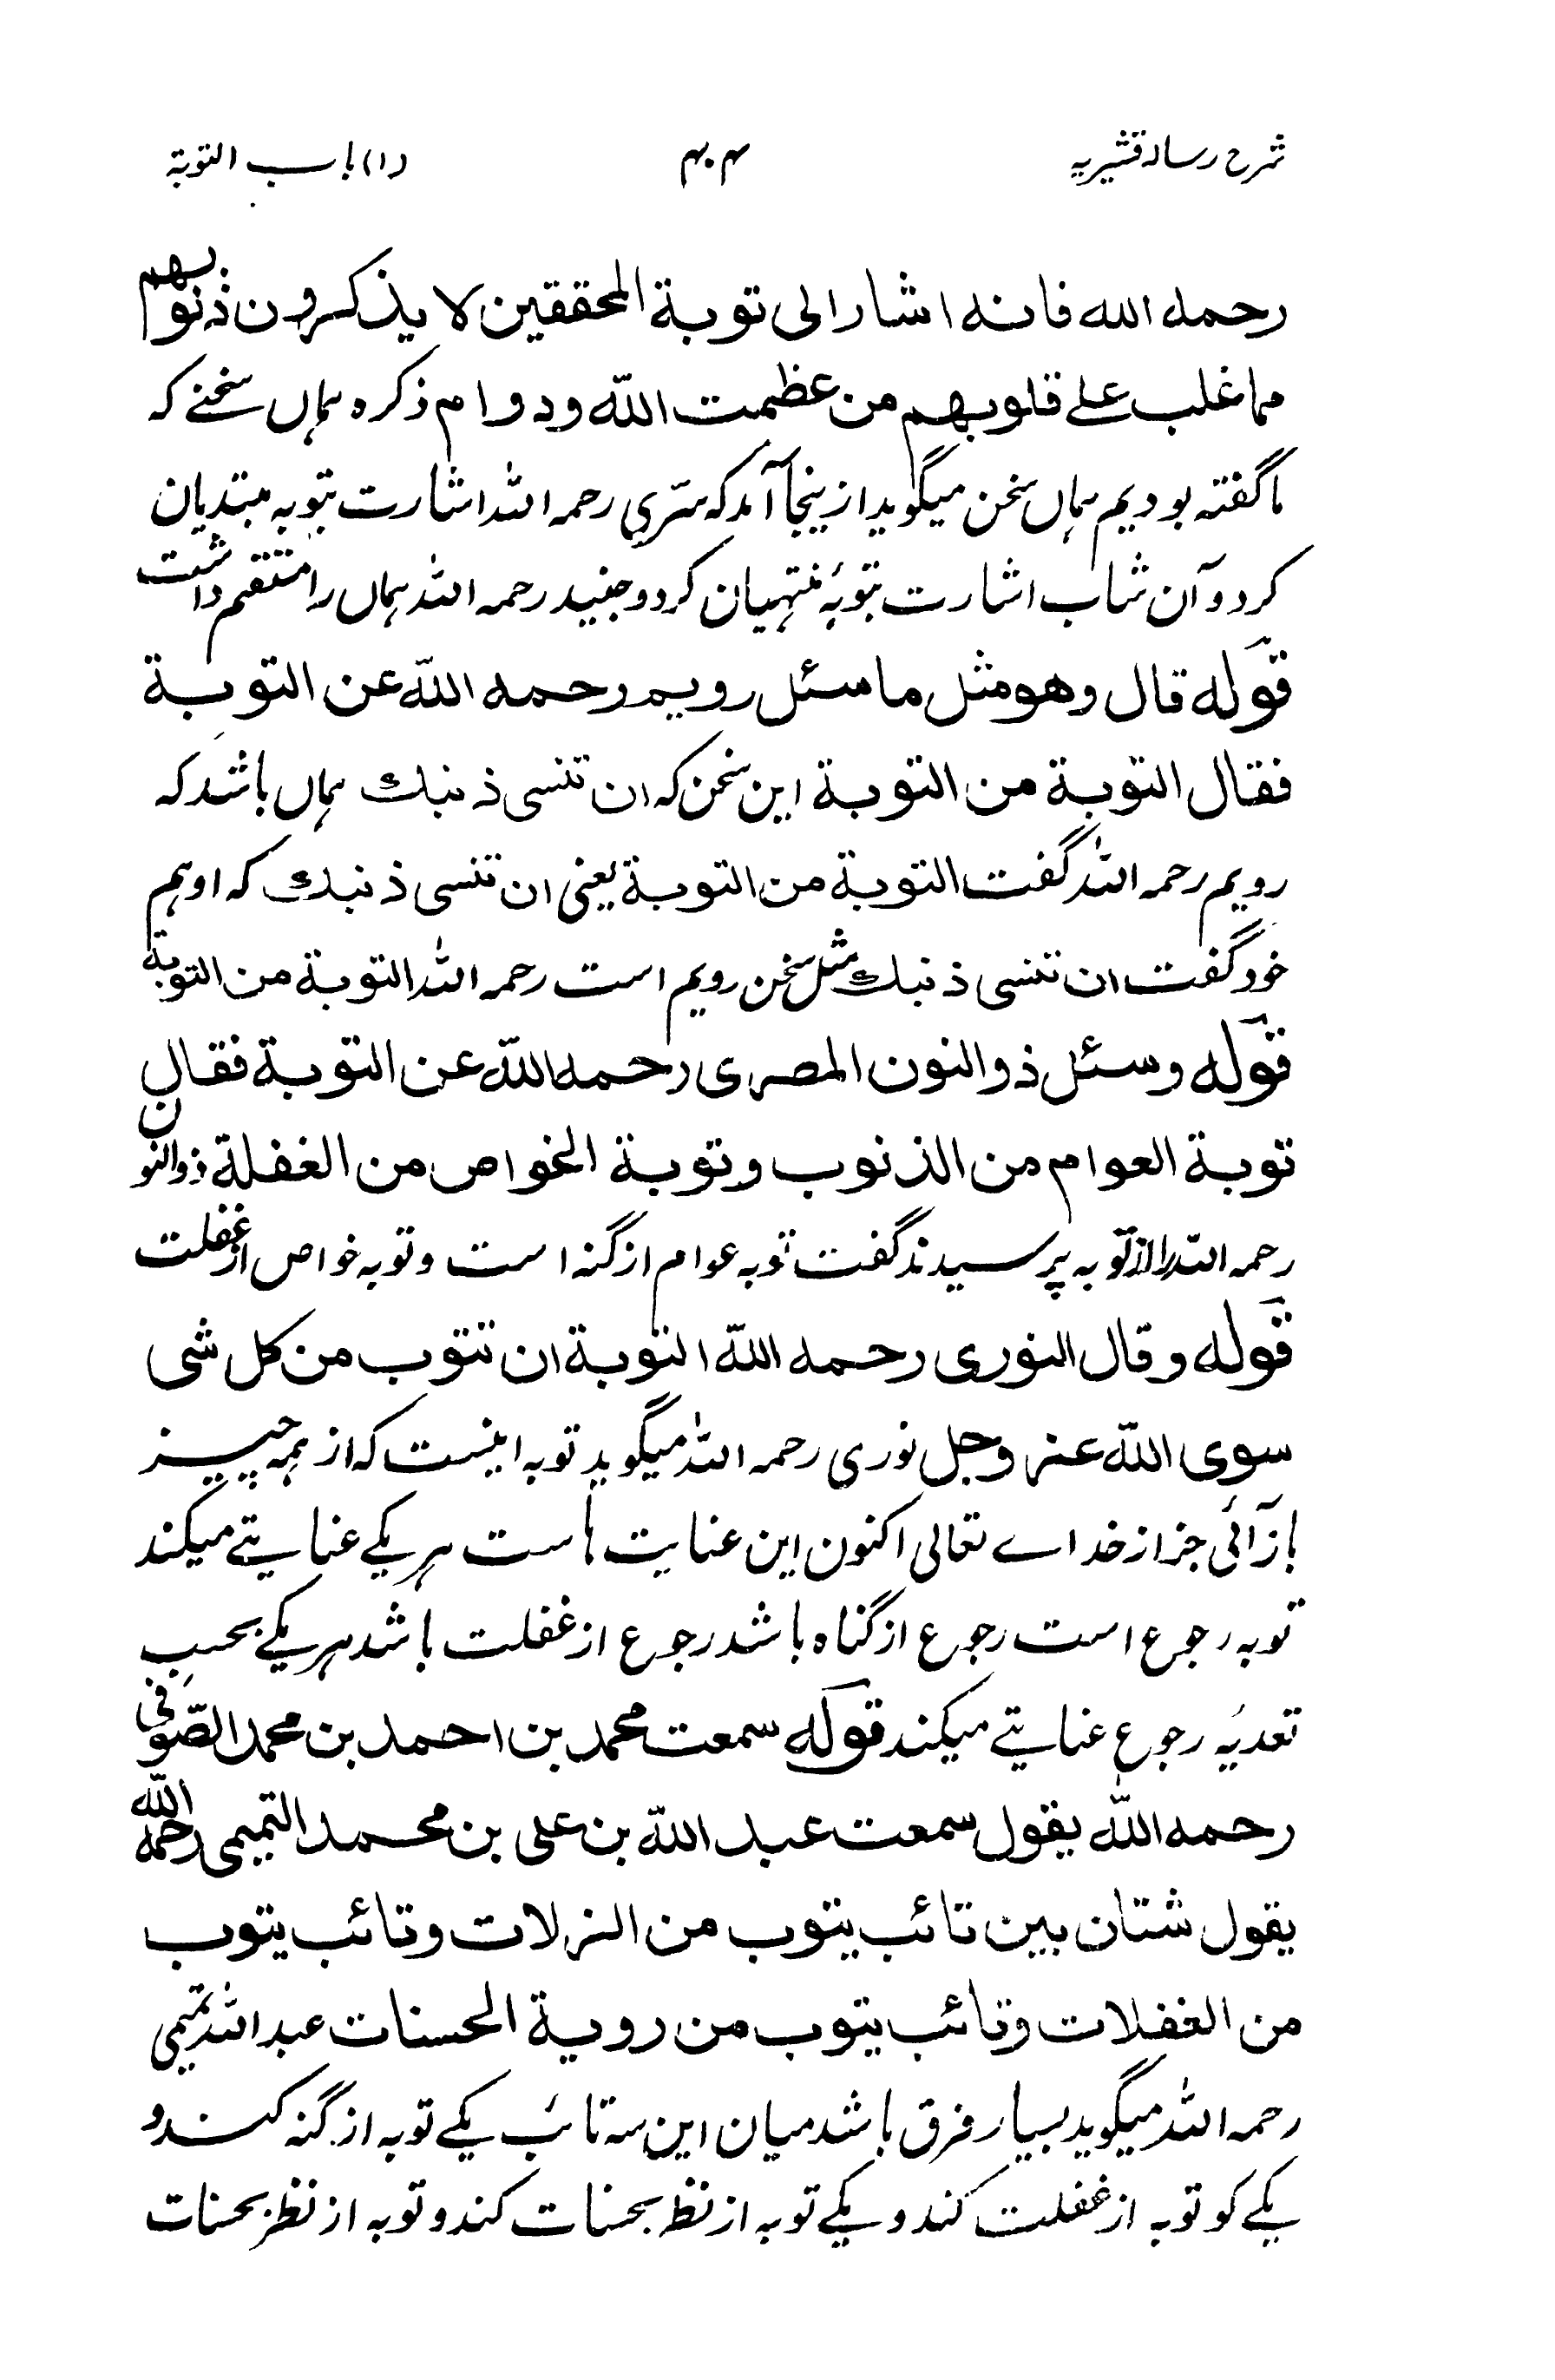 شرح رسالہ قشیریہ ۴۰۴ (۱) باب التوبة
رحمه الله فانه اشار الى توبة المحققين لا يذكرون ذنوبهم
مما غلب علے قلوبهم من عظمت اللّٰه ودوام ذكره ہماں سخنے کہ
ما گفته بودیم ہماں سخن میگوید ازینجا آمد که سرّی رحمه الله اشارت بتوبہ مبتدیان
کرد و آن شاب اشارت بتوبۂ منتہیان کرد و جنید رحمه الله ہماں را مستقیم داشت
قوله قال وهو مثل ما سئل رويم رحمه اللّٰه عن التوبة
فقال التوبة من التوبة این سخن که ان تنسى ذنبك ہماں باشد که
رویم رحمه الله گفت التوبة من التوبة یعنی ان تنسى ذنبك که او ہم
خود گفت ان تنسى ذنبك مثل سخن رویم است رحمه الله التوبة من التوبة
قوله وسئل ذوالنون المصرى رحمه اللّٰه عن التوبة فقال
توبة العوام من الذنوب وتوبة الخواص من الغفلة ذوالنون
رحمه الله را از توبه پرسیدند گفت توبه عوام از گنه است و توبه خواص از غفلت
قوله وقال النورى رحمه اللّٰه التوبة ان تتوب من كل شى
سوى اللّٰه عز وجل نوری رحمه الله میگوید توبه اینست که از ہمہ چیز
باز آئی جز از خداے تعالی اکنون این عنایت ہاست ہر یکے عنایتے میکند
توبه رجوع است رجوع از گناه باشد رجوع از غفلت باشد ہر یکے بحسب
تعدیہ رجوع عنایتے میکند قوله سمعت محمد بن احمد بن محمد الصّوفى
رحمه اللّٰه يقول سمعت عبد اللّٰه بن على بن محمد التميمى رحمه اللّٰه
يقول شتان بين تائب يتوب من الزلات وتائب يتوب
من الغفلات وتائب يتوب من روية الحسنات عبد الله تمیمی
رحمه الله میگوید بسیار فرق باشد میان این سه تائب یکے توبه از گنه کند و
یکے کو توبه از غفلت کند و یکے توبه از نظر بحسنات کند و توبه از نظر بحسنات